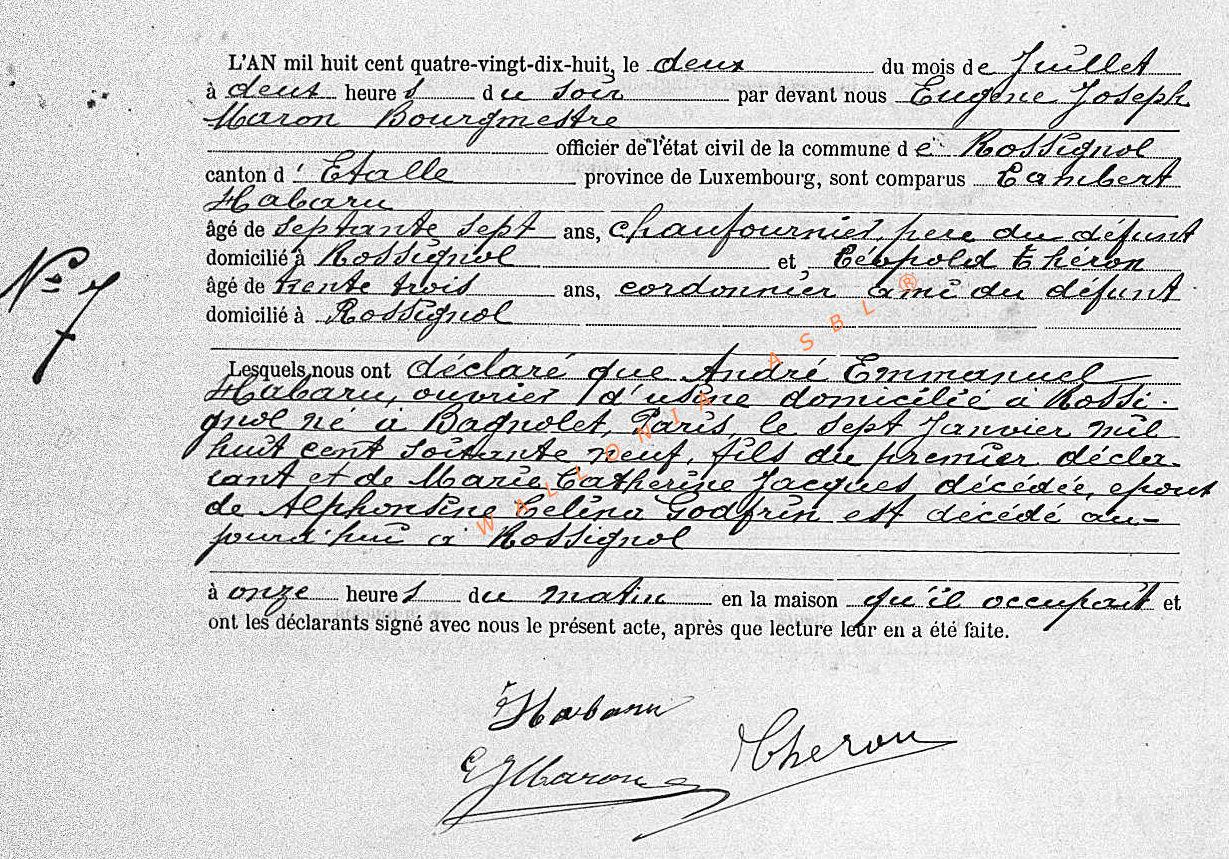 L'AN mil huit cent quatre-vingt-dix-huit, le deux du mois de Juillet
à deux heures du soir par devant nous Eugène Joseph
Maron Bourgmestre
officier de l'état civil de la commune de Rossignol
canton d'Etalle province de Luxembourg, sont comparus Lambert
Habaru
âgé de septante sept ans, chaufournier, père du défunt
domicilié à Rossignol et Léopold Théron
âgé de trente trois ans, cordonnier ami du défunt
domicilié à Rossignol
N° 7
Lesquels nous ont déclaré que André Emmanuel
Habaru, ouvrier d'usine domicilié à Rossi-
gnol né à Bagnolet, Paris, le sept Janvier mil
huit cent soixante neuf, fils du premier décla-
rant et de Marie Catherine Jacques décédée, époux
de Alphonsine Célina Godfrin est décédé au-
jourd'hui à Rossignol
à onze heures du matin en la maison qu'il occupait et
ont les déclarants signé avec nous le présent acte, après que lecture leur en a été faite.
Habaru
EJMaron
Theron
WALLONIA ASBL ®